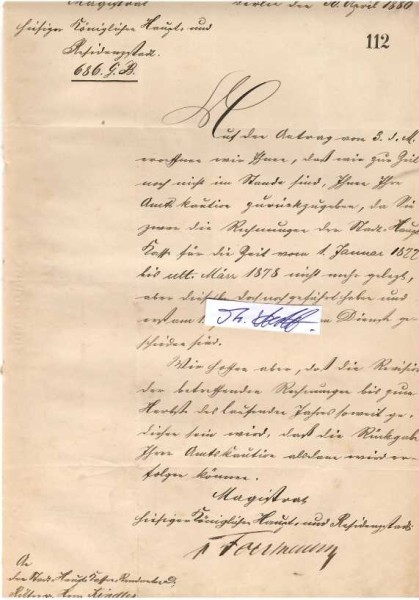 Magistrat Berlin den 30. April 1880
hiesiger Königlichen Haupt- und
Residenzstadt.
112
686. G. B.
Auf den Antrag vom 3. d. M.
eröffnen wir Ihnen, daß wir zur Zeit
noch nicht im Stande sind, Ihnen Ihre
Amtskaution zurückzugeben, da Sie
zwar die Rechnungen der Stadt-Haupt
Kasse für die Zeit vom 1. Januar 1877
bis ult. März 1878 nicht mehr gelegt,
aber doch noch geführt haben und
erst am Dienst ge-
schieden sind.
Wir hoffen aber, daß die Revision
der betreffenden Rechnungen bis zum
Herbst des laufenden Jahres soweit ge-
diehen sein wird, daß die Rückgabe
Ihrer Amtskaution alsdann wird er-
folgen können.
Magistrat
hiesiger Königlichen Haupt- und Residenzstadt
An
den Stadt-Haupt-Kassen-Rendanten
Ritter Herrn